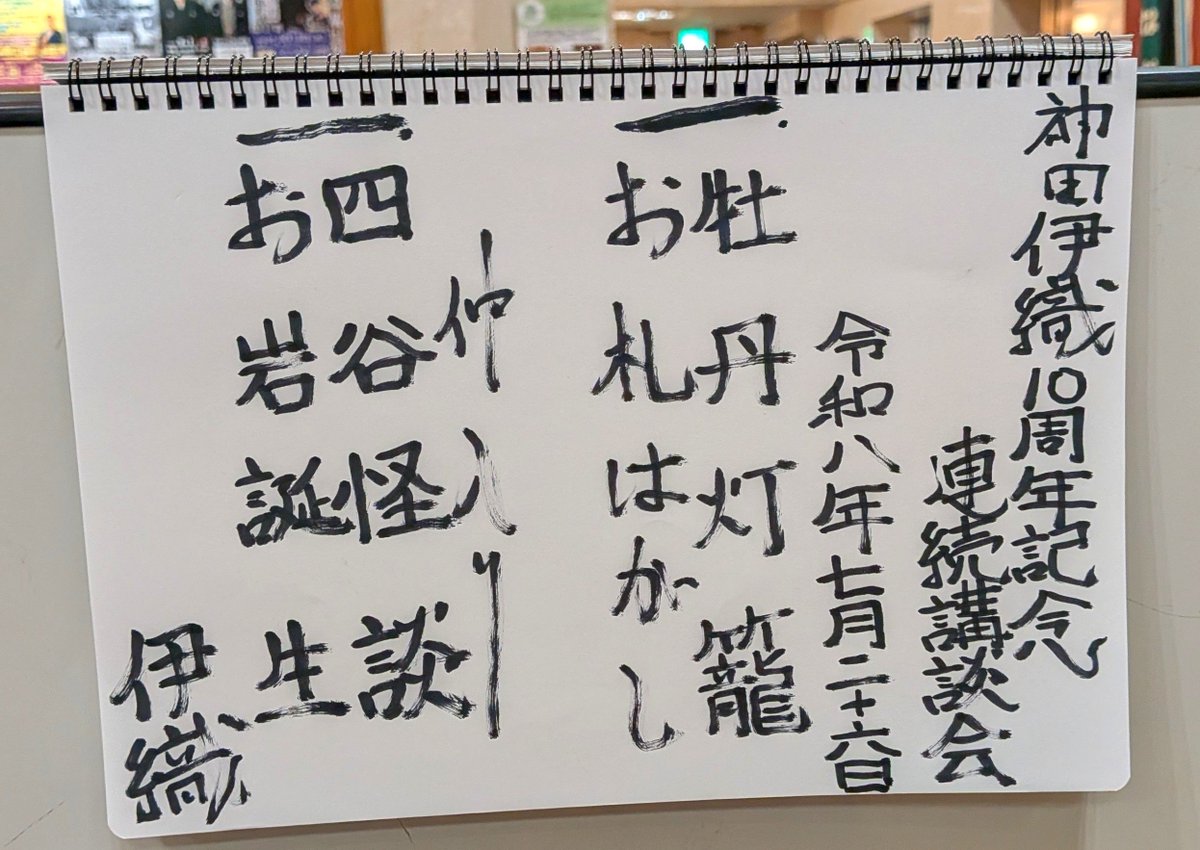 神田伊織10周年記念
連続講談会
令和八年七月二十六日
一.牡丹灯籠
お札はがし
仲入り
一.四谷怪談
お岩誕生
伊織